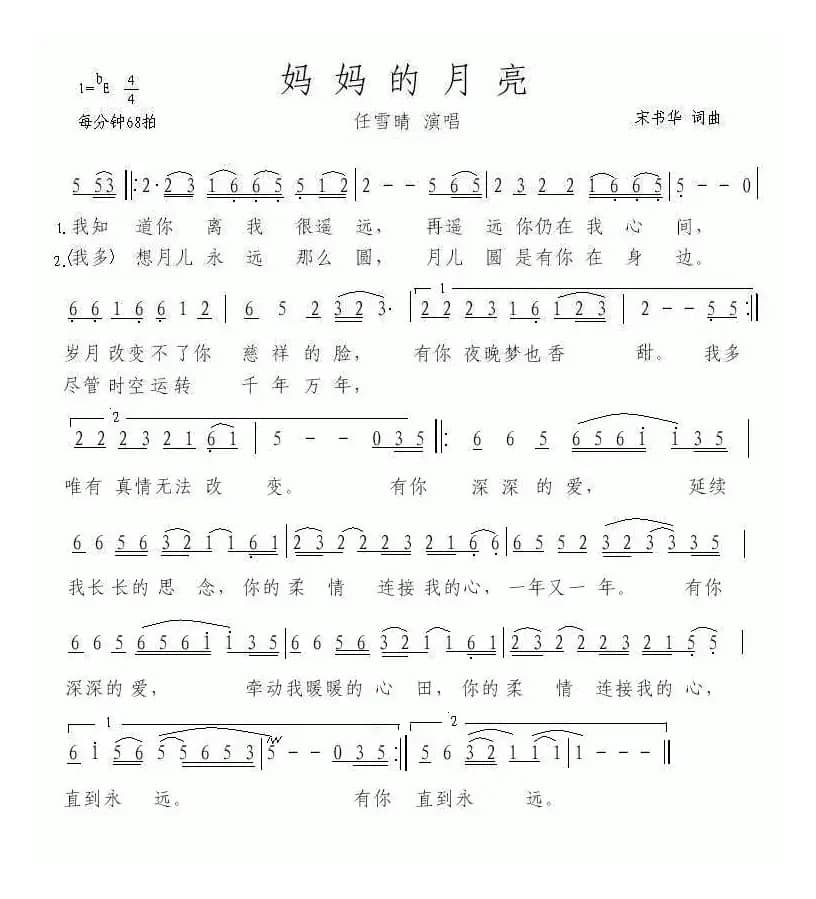 妈妈的月亮
1=♭E 4/4
任雪晴 演唱
宋书华 词曲
每分钟68拍
5 53 ‖: 2· 23 1665 512 | 2 - - 565 | 2322 1665 | 5 - - 0 |
1.我知 道你 离我 很遥 远, 再遥远 你仍在我心 间,
2.(我多) 想月儿永远 那么圆, 月儿圆是有你在身边。
66166 12 | 6 5 2 323· | 1 22231 6123 | 2 - - 55 :‖
岁月改变不了你 慈祥的脸, 有你夜晚梦也香 甜。 我多
尽管时空运转 千年万年,
2 22232161 | 5 - - 035 ‖: 6 65 6561 135 |
唯有真情无法改 变。 有你 深深的爱, 延续
6656321161 | 232223216 6 | 6552323335 |
我长长的思 念, 你的柔情 连接我的心, 一年又一年。 有你
6656561135 | 6656321161 | 232223215 5 |
深深的爱, 牵动我暖暖的心田, 你的柔情 连接我的心,
1 6156 55653 | 5 - - 035 :‖ 2 563211 1 | 1 - - - ‖
直到永远。 有你 直到永 远。